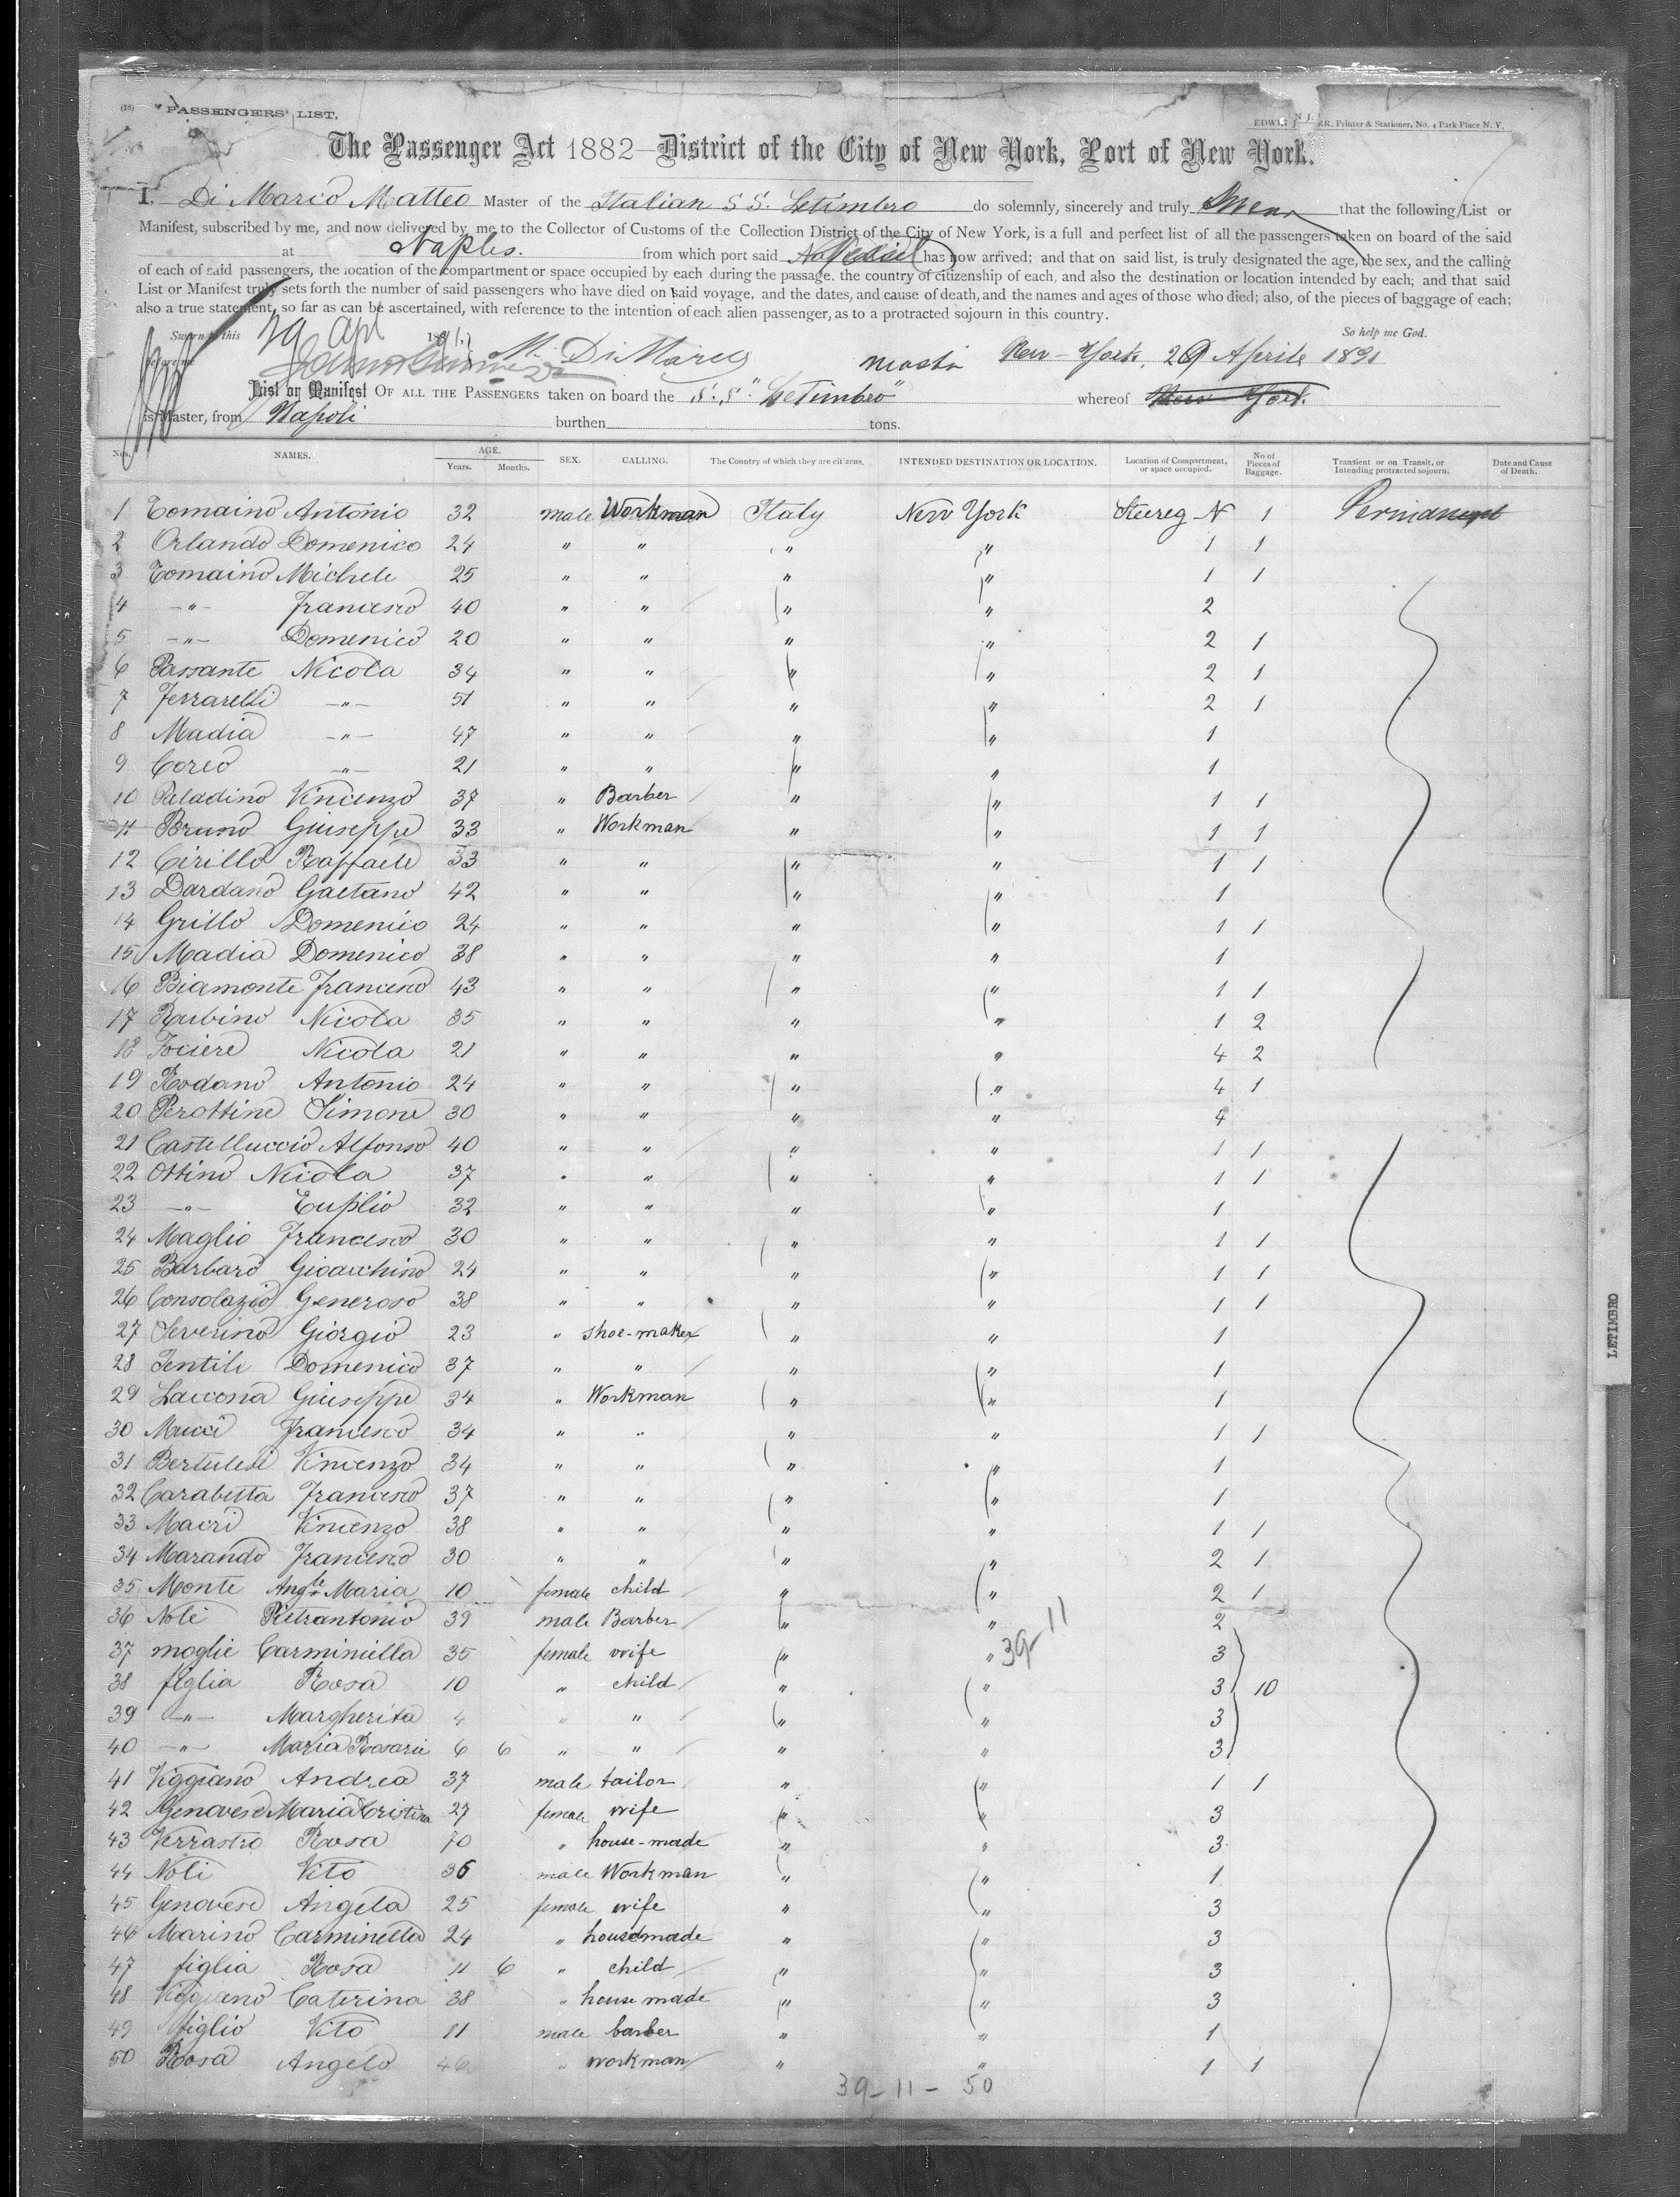 (18) PASSENGERS' LIST.
N. J.
EDWIN RR, Printer & Stationer, No. 4 Park Place N. Y.
The Passenger Act 1882—District of the City of New York, Port of New York.
I, Di Marco Matteo Master of the Italian S S. Letimbro do solemnly, sincerely and truly Swear that the following List or
Manifest, subscribed by me, and now delivered by me to the Collector of Customs of the Collection District of the City of New York, is a full and perfect list of all the passengers taken on board of the said
at Naples. from which port said has now arrived; and that on said list, is truly designated the age, the sex, and the calling
of each of said passengers, the location of the compartment or space occupied by each during the passage. the country of citizenship of each, and also the destination or location intended by each; and that said
List or Manifest truly sets forth the number of said passengers who have died on said voyage, and the dates, and cause of death, and the names and ages of those who died; also, of the pieces of baggage of each;
also a true statement, so far as can be ascertained, with reference to the intention of each alien passenger, as to a protracted sojourn in this country.
Sworn to this 29 Apl 1891 So help me God.
before me M. Di Marco New-York, 29 Aprile 1891
List or Manifest OF ALL THE PASSENGERS taken on board the S. S. "Letimbro" whereof New York.
is Master, from Napoli burthen tons.
Nos. NAMES. AGE. Years. Months. SEX. CALLING. The Country of which they are citizens. INTENDED DESTINATION OR LOCATION. Location of Compartment, or space occupied. No of Pieces of Baggage. Transient or on Transit, or Intending protracted sojourn. Date and Cause of Death.
1 Tomaino Antonio 32 male Workman Italy New York Steereg N 1 Permanent
2 Orlando Domenico 24 " " " " 1 1
3 Tomaino Michele 25 " " " " 1 1
4 -"- Francesco 40 " " " " 2
5 -"- Domenico 20 " " " " 2 1
6 Passante Nicola 34 " " " " 2 1
7 Ferrarelli -"- 51 " " " " 2 1
8 Madia -"- 47 " " " " 1
9 Coreo -"- 21 " " " " 1
10 Paladino Vincenzo 37 " Barber " " 1 1
11 Bruno Giuseppe 33 " Workman " " 1 1
12 Cirillo Raffaele 33 " " " " 1 1
13 Dardano Gaetano 42 " " " " 1
14 Grillo Domenico 24 " " " " 1 1
15 Madia Domenico 38 " " " " 1
16 Biamonte Francesco 43 " " " " 1 1
17 Rubino Nicola 35 " " " " 1 2
18 Nicola 21 " " " " 4 2
19 Rodano Antonio 24 " " " " 4 1
20 Perottine Simone 30 " " " " 4
21 Castelluccio Alfonso 40 " " " " 1 1
22 Ottino Nicola 37 " " " " 1 1
23 -"- Euplio 32 " " " " 1
24 Maglio Francesco 30 " " " " 1 1
25 Barbaro Gioacchino 24 " " " " 1 1
26 Consolazio Generoso 38 " " " " 1 1
27 Severino Giorgio 23 " shoe-maker " " 1
28 Gentile Domenico 37 " " " " 1
29 Laccona Giuseppe 34 " Workman " " 1
30 Mucci Francesco 34 " " " " 1 1
31 Bertulesi Vincenzo 34 " " " " 1
32 Carabetta Francesco 37 " " " " 1
33 Macri Vincenzo 38 " " " " 1 1
34 Marando Francesco 30 " " " " 2 1
35 Monte Angla Maria 10 female child " " 2 1
36 Nole Pietrantonio 39 male Barber " " 2
37 moglie Carminiella 35 female wife " " 39-11 3
38 figlia Rosa 10 " child " " 3 10
39 -"- Margherita 4 " " " " 3
40 -"- Maria Rosaria 6 6 " " " " 3
41 Viggiano Andrea 37 male tailor " " 1 1
42 Genovese Maria Cristina 27 female wife " " 3
43 Verrastro Rosa 70 " house-made " " 3
44 Noli Vito 36 male Workman " " 1
45 Genovese Angela 25 female wife " " 3
46 Marino Carminella 24 " housemade " " 3
47 figlia Rosa 11 6 " child " " 3
48 Viggiano Caterina 38 " house made " " 3
49 figlio Vito 11 male barber " " 1
50 Rosa Angelo 46 " workman " " 1 1
39-11- 50
LETIMBRO